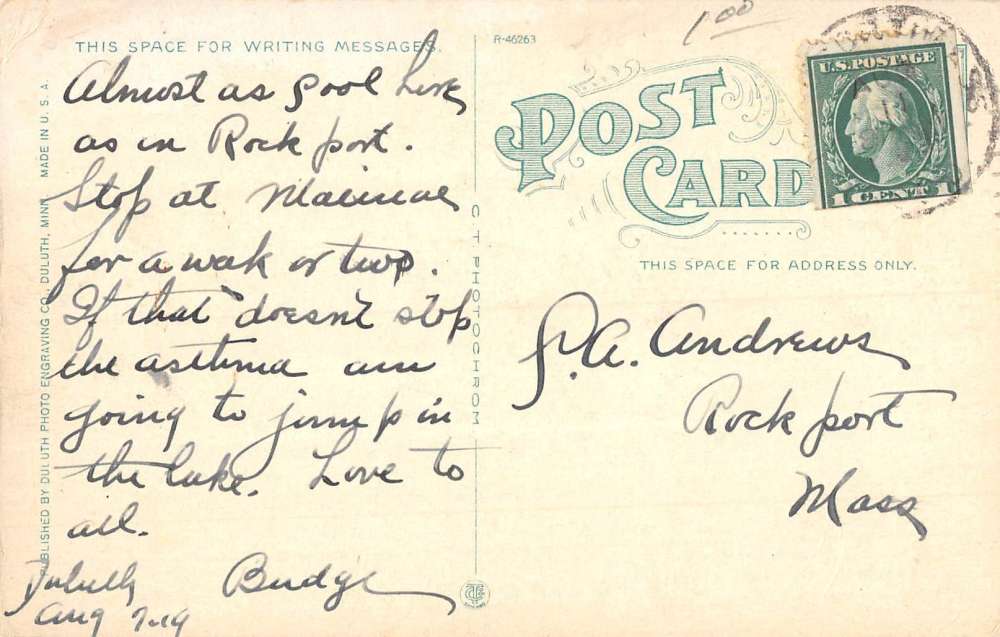 THIS SPACE FOR WRITING MESSAGES.
Almost as cool here
as in Rockport.
Stop at
for a week or two.
If that doesn't stop
the asthma am
going to jump in
the lake. Love to
all.
Budge
Duluth
Aug 7-19
PUBLISHED BY DULUTH PHOTO ENGRAVING CO., DULUTH, MINN. MADE IN U. S. A.
C T PHOTOCHROM
R-46263
1.00
POST
CARD
U.S. POSTAGE
1 CENT 1
THIS SPACE FOR ADDRESS ONLY.
Andrews
Rockport
Mass